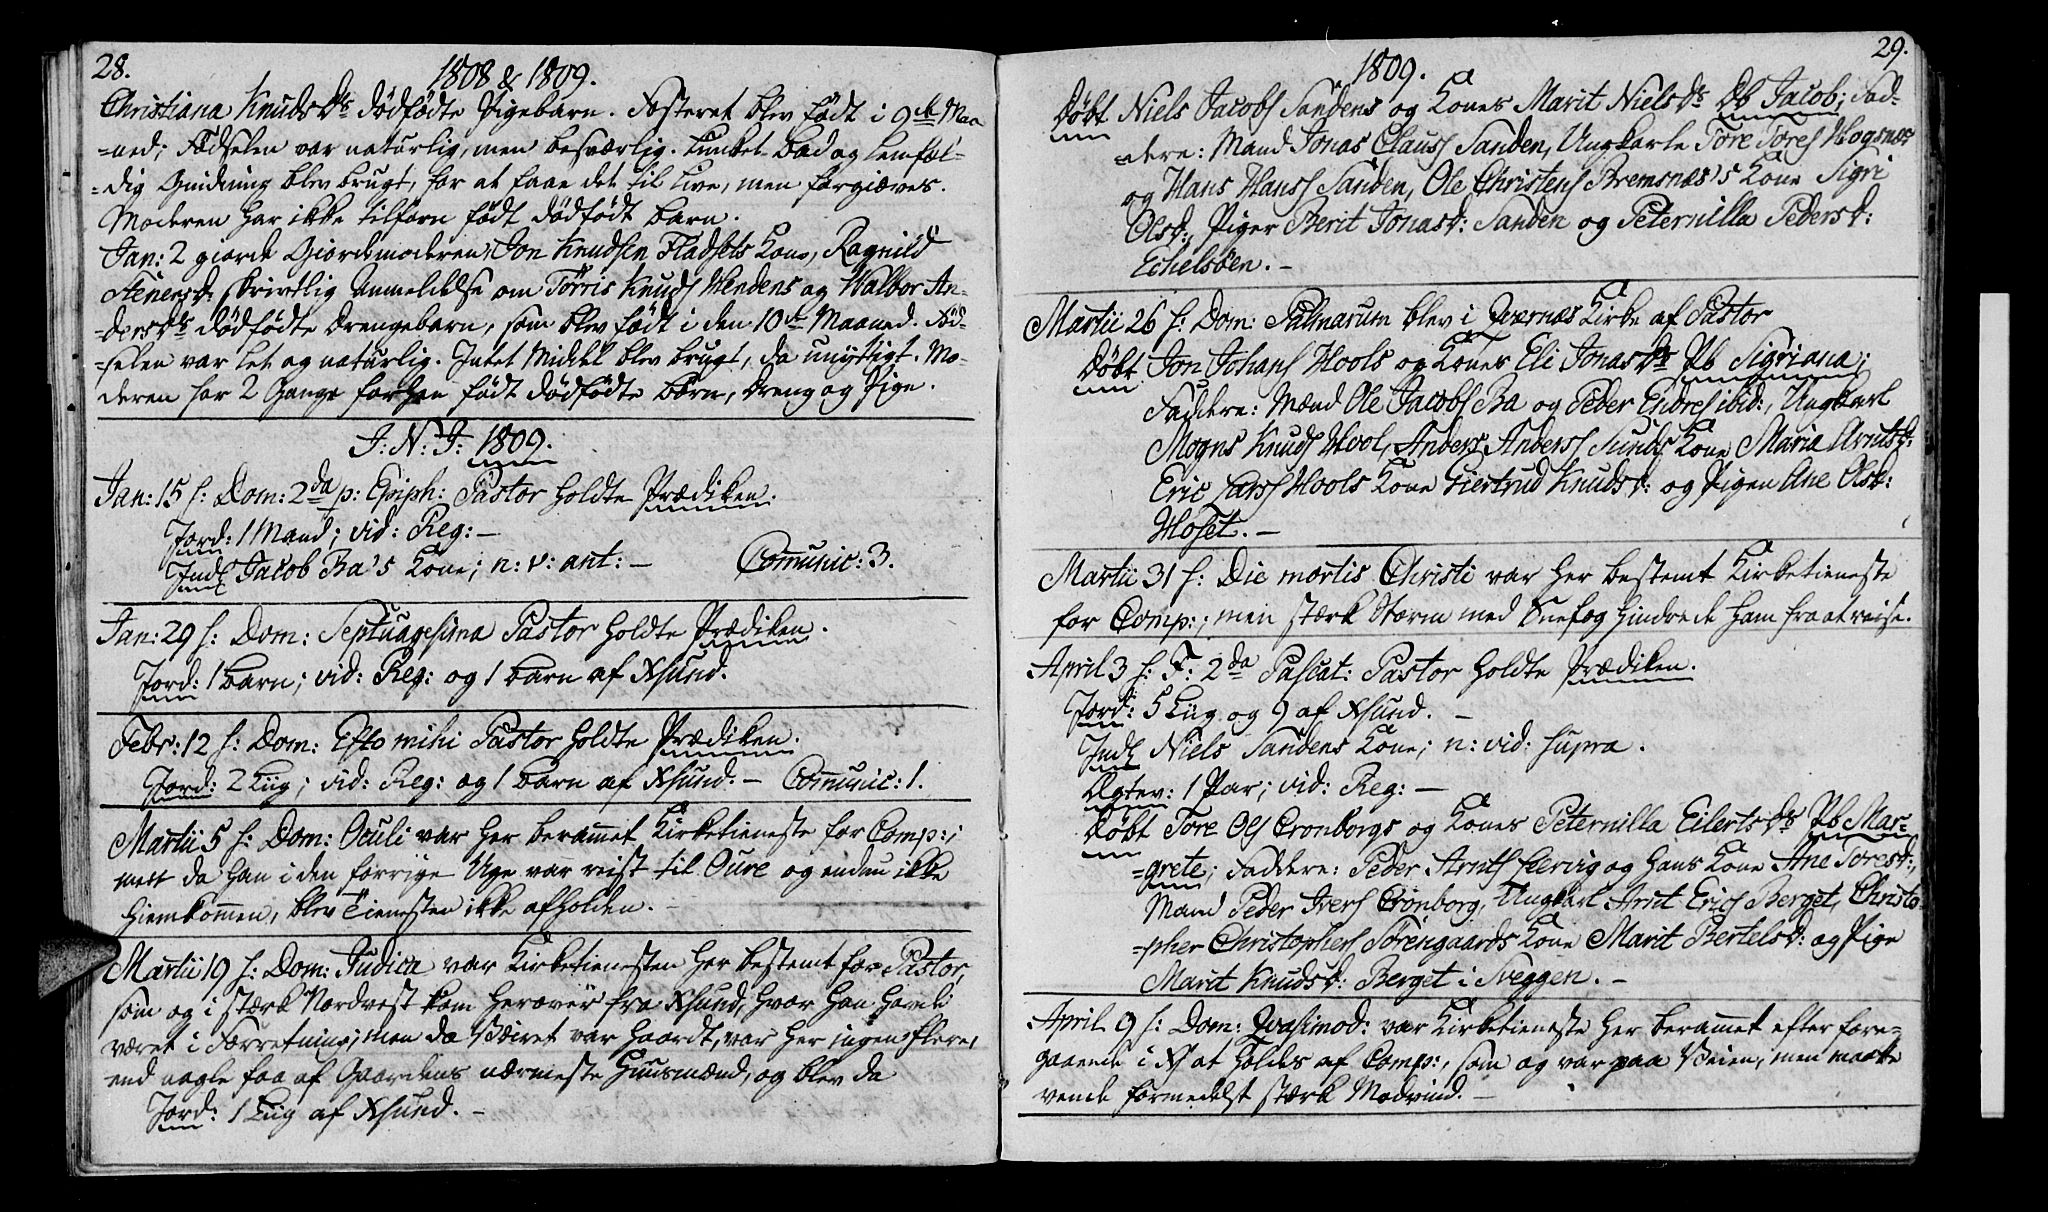 28.
1808 & 1809.
Christiana Knuds Dr dødfødte Pigebarn. Fosteret blev født i 9de Maa
=ned; Fødselen var naturlig, men besværlig. Lunket Bad og lemfæl=
=dig Gnidning blev brugt, for at faae det til Live, men forgiæves.
Moderen har ikke tilforn født dødfødt Barn.
Jan: 2 giorde Giordemoderen, Jon Knudsen Fladsets Kone, Ragnild
Steners D: skrivtlig Anmeldelse om Törris Knuds Hendens og Walbor An=
=dersDr dødfødte Drengebarn, som blev født i den 10de Maaned. Fød=
=selen var let og naturlig. Intet Middel blev brugt, da unyttigt. Mo=
deren har 2 Gange forhen født dødfødte Børn, Dreng og Pige.
J: N: J: 1809.
Jan: 15 s: Dom: 2da p: Epiph: Pastor holdte Prædiken.
Jord: 1 Mand; vid: Reg: —
Indl Jacob Ba's Kone; n: v: ant: — Com̅unic: 3.
Jan: 29 s: Dom: Septuagesima Pastor holdte Prædiken.
Jord: 1 Barn; vid: Reg: og 1 Barn af Xsund.
Febr: 12 s: Dom: Esto mihi Pastor holdte Prædiken.
Jord: 2 Liig; vid: Reg: og 1 Barn af Xsund. — Com̅unic: 1.
Martii 5 s: Dom: Oculi var her beram̅et Kirketieneste for Comp:;
men da han i den forrige Uge var reist til Oure og endnu ikke
hiemkom̅en, blev Tienesten ikke afholden. —
Martii 19 s: Dom: Judica var Kirketienesten her bestemt for Pastor,
som og i stærk Nordvest kom herover fra Xsund, hvor han havde
været i Forretning; men da Veiret var haardt, var her ingen flere,
end nogle faa af Gaardens nærmeste Huusmænd, og blev da
Jord: 1 Liig af Xsund. —
29.
1809.
Døbt Niels Jacobs Sandens og Kones Marit Niels Dr Db Jacob; Fad=
=dere: Mand Jonas Clauss Sanden, Ungkarle Tore Tores Hogsnes
og Hans Hanss Sanden, Ole Christens Bremsnæs's Kone Sigri
Olsd:, Piger Berit Jonasd: Sanden og Peternilla Pedersd:
Echelsöen. —
Martii 26 s: Dom: Palmarum blev i Qværnes Kirke af Pastor
Døbt Jon Johans Hools og Kones Eli Jonas Dr Pb Sigriana;
Faddere: Mænd Ole Jacobs Ba og Peder Endres ibid:, Ungkarl
Mogns Knuds Hool, Anders Anderss Sunds Kone Maria Arntsd:
Eric Larss Hools Kone Giertrud Knudsd: og Pigen Ane Olsd:
Moset. —
Martii 31 s: Die mortis Christi var her bestemt Kirketieneste
for Comp:; men stærk Storm med Snefog hindrede ham fra at reise.
April 3 s: F: 2da Pascat: Pastor holdte Prædiken.
Jord: 5 Liig og 9 af Xsund. —
Indl Niels Sandens Kone; n: vid: supra.
Ægtev: 1 Par; vid: Reg: —
Døbt Tore Ols Cronborgs og Kones Peternilla Eilerts Dr Pb Mar=
=grete; Faddere: Peder Arnts Hervig og hans Kone Ane Toresd:,
Mand Peder Ivers Cronborg, Ungkarl Arnt Erics Berget, Christo=
=pher Christophers Sörengaards Kone Marit Bertelsd: og Pige
Marit Knudsd: Berget i Sveggen. —
April 9 s: Dom: Qvasimod: var Kirketieneste her beram̅et efter fore=
gaaende i X at holdes af Comp:, som og var paa Veien; men maatte
vende formedelst stærk Modvind. —